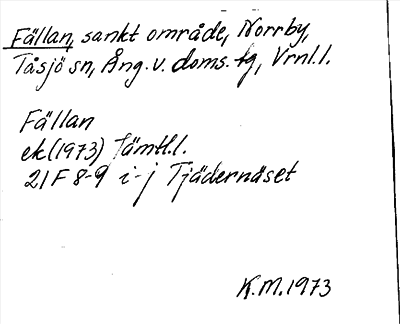 Fällan, sankt område, Norrby,
Tåsjö sn, Ång. v. doms. tg, Vrnl.l.
Fällan
ek (1973) Jämtl.l.
21F 8-9 i-j Tjädernäset
K.M. 1973